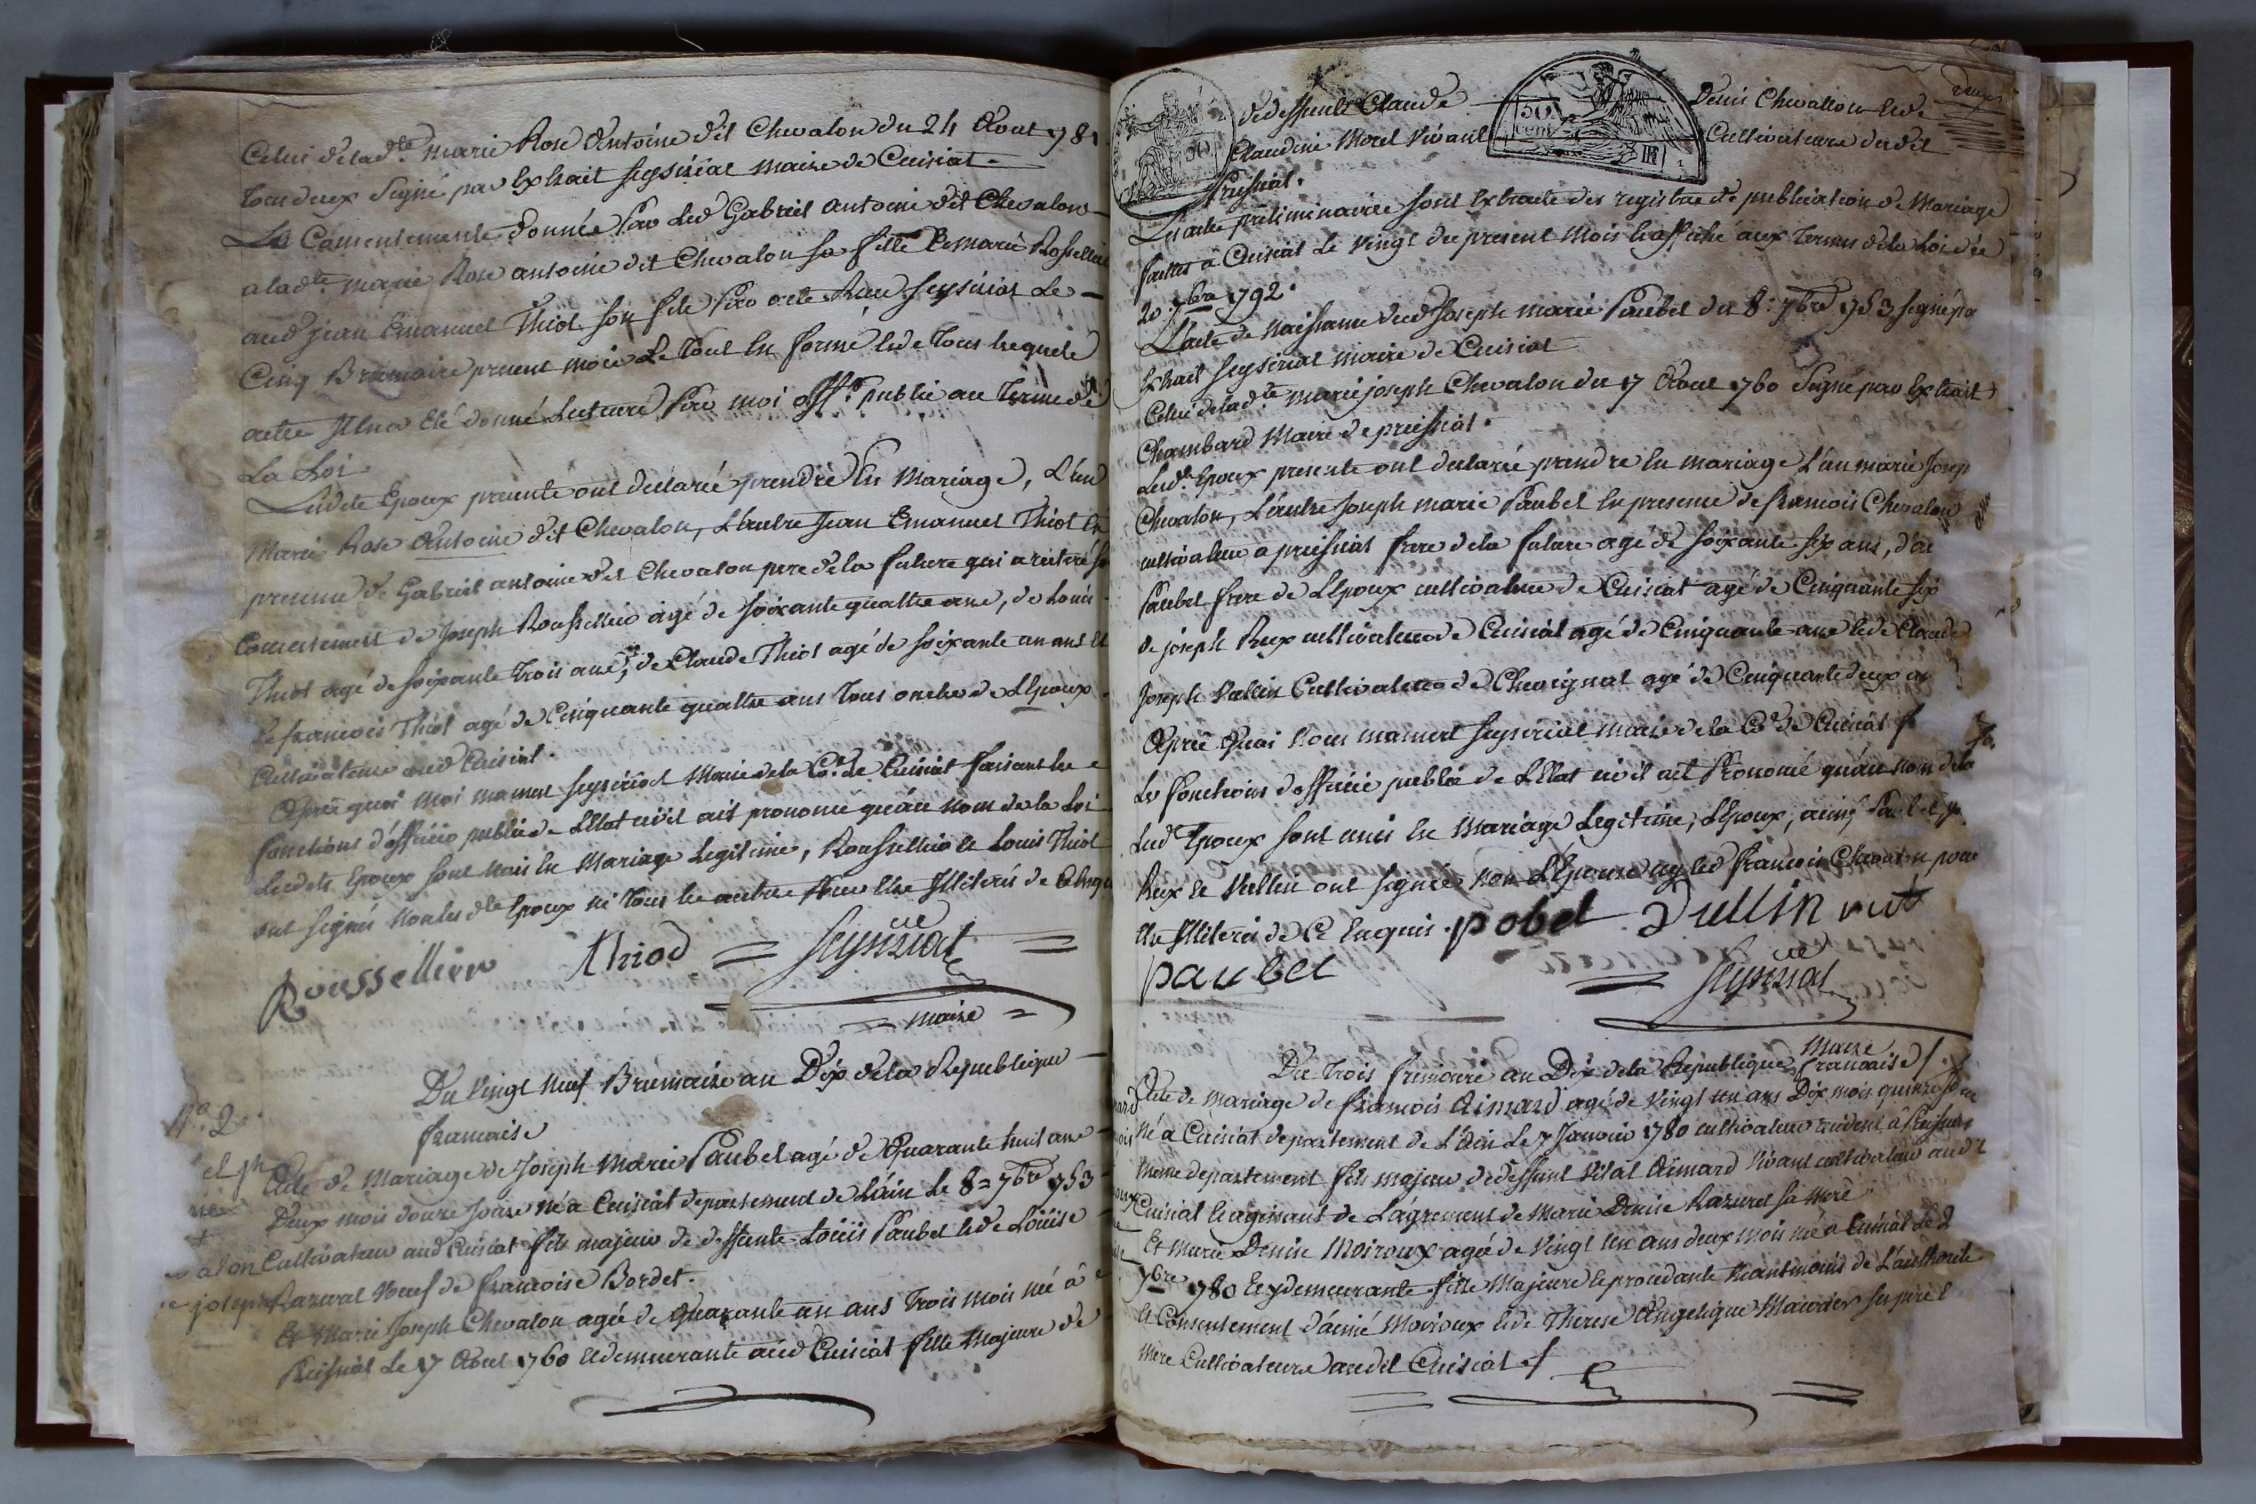 Celui de lad.te marie Rose Antoine dit Chevalon du 24 Aout 1781
tou deux Signé par Extrait Seysiriat maire de Cuisiat
Les Consentemente donnée Par Led Gabriel antoine dit Chevalon
a lad.te marie Rose antoine dit Chevalon sa fille Et marie Rossellin
aud jean Emanuel Thiot son file Par acte Reçu Seysiriat Le
Cinq Brumaire present mois Le tout En forme Et de tous lesquels
actes Il en a Eté donné Lecture Par moi off.r public au terme de
La Loi
Lesdits Epoux presents ont déclaré prendre En Mariage, L'un
Marie Rose Antoine dit Chevalon, L'autre Jean Emanuel Thiot En
presence de Gabriel antoine dit Chevalon pere de la future qui a reiteré so
Consentement de Joseph Rousselliu agé de soixante quattre ans, de Louis
Thiot agé de soixante trois ans, de Claude Thiot agé de soixante un ans Et
de francois Thiot agé de Cinquante quattre ans tous oncles de L'Epoux
Cultivateurs aud Cuisiat.
Après quoi moi mamert Seysiriat Maire de la C.ne de Cuisiat faisant les
fonctions d'officier public de L'Etat civil ait prononcé qu'au nom de la Loi
Lesdits Epoux sont unis En Mariage Legitime, Rousselliu et Louis Thiot
ont signés non les d.ts Epoux ni tous les autres Pour Etre Illiterés de Ce Enqui
Roussellieu Thiod Seysiriat
maire
Du Vingt neuf Brumaire an Dix de la Republique
francaise
N.o 2
Acte de Mariage de Joseph Marie Paubel agé de Quarante huit ans
Deux mois douze Jours né a Cuisiat departement de L'ain Le 8 = 7bre 1753
Cultivateur aud Cuisiat fils majeur de deffunts Loüis Paubel Et de Loüise
Razurel Veuf de francoise Bordet.
Et Marie Joseph Chevalon agée de quarante un ans trois mois né à
Preissiat Le 17 Aout 1760 Et demeurante aud Cuisiat fille Majeure de
alon
joseph
dedeffunts Claude Denis Chevallon Et de
Claudine Morel Vivant Cultivateurs du dit
Preissiat.
Les actes preliminaires sont Extraits des registres de publication de Mariage
faittes a Cuisiat Le Vingt du present Mois Et affiché aux termes de la Loi du
20 7bre 1792.
L'acte de Naissance dud Joseph marie Paubel du 8: 7bre 1753 signé pa
Extrait Seysiriat maire de Cuisiat
Celui de lad.te marie joseph Chevalon du 17 Aout 1760 Signé par Extrait
Chambard Maire de preissiat.
Lesd.ts Epoux presents ont declaré prendre En mariage L'un marie Josep
Chevalon, L'autre Joseph marie Paubel En presence de francois Chevalon
cultivateur a preissiat frere de la future agé de soixante six ans, d'ai
Paubel frere de L'Epoux cultivateur de Cuisiat agé de Cinquante six
de joseph Reux cultivateur de Cuisiat agé de Cinquante ans Et de Claude
Joseph Vullin Cultivateur de Chevignat agé de Cinquante deux an
Après Quoi Nous mamert Seysiriat maire de la C.ne de Cuisiat f
Les fonctions d'officier public de L'Etat civil ait Prononcé qu'au nom de la
Lesd Epoux sont unis En Mariage Legitime, L'Epoux, aimé Paubel, jo
Reux et Vullin ont signés non L'Epouse ny led francois Chevalon pour
Etre Illiterés de Ce Enquis. pobel Vullin
paubel Seysiriat
maire
Du trois frimaire an Dix de la Republique francaise
Acte de mariage de francois Aimard agé de Vingt un ans Dix mois quinze Jour
Né a Cuisiat departement de L'Ain Le 7 Janvier 1780 cultivateur resident à Preissiat
Meme departement fils majeur de deffunt Vital Aimard Vivant cultivateur aud.t
Cuisiat Et agissant de L'agrement de Marie Denise Razurel sa mere
Et Marie Denise Moiroux agée de Vingt un ans deux mois né a Cuisiat Le 2
7bre 1780 Et y demeurante fille Majeure Et procedante Neantmoins de L'authorité
Et Consentement d'aimé Moiroux Et de Therese Angelique Mairder ses pere E
Mere Cultivateurs audit Cuisiat